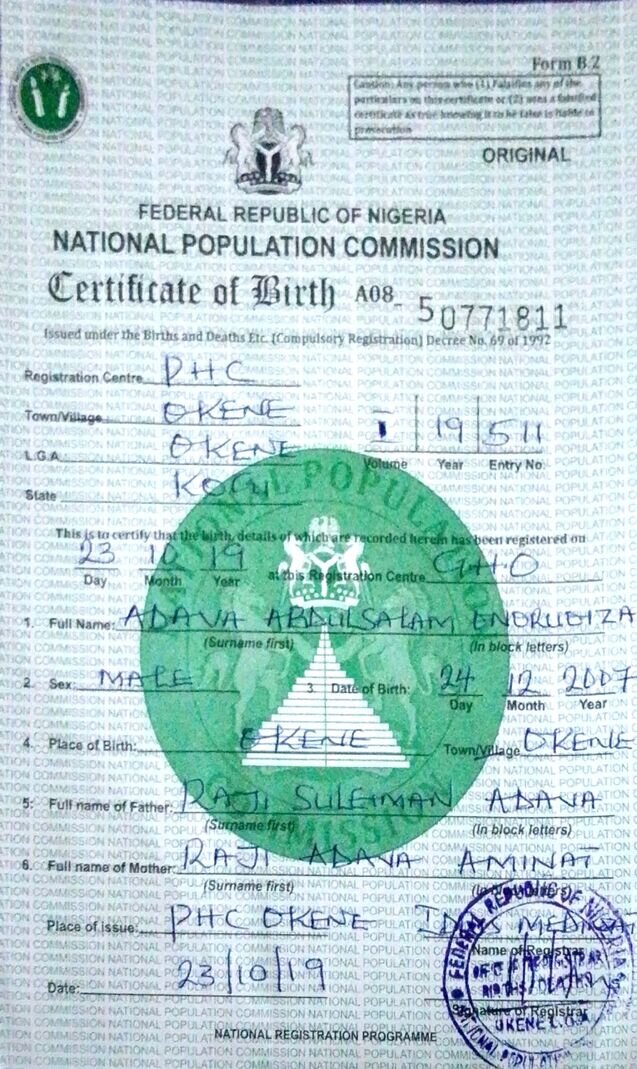 Form B.2
Caution: Any person who (1) Falsifies any of the
particulars on this certificate or (2) uses a falsified
certificate as true knowing it to be false is liable to
prosecution
ORIGINAL
FEDERAL REPUBLIC OF NIGERIA
NATIONAL POPULATION COMMISSION
Certificate of Birth A08_ 50771811
Issued under the Births and Deaths Etc. [Compulsory Registration] Decree No. 69 of 1992
Registration Centre PHC
Town/Village OKENE
I 19 511
L.G.A. OKENE
Volume Year Entry No.
State KOGI
This is to certify that the birth, details of which are recorded herein has been registered on
23 10 19 at this Registration Centre GHO
Day Month Year
1. Full Name: ADAVA ABDULSALAM
(Surname first) (In block letters)
2. Sex: MALE 3. Date of Birth: 24 12 2007
Day Month Year
4. Place of Birth: OKENE Town/Village OKENE
5: Full name of Father: RAJI SULEIMAN ADAVA
(Surname first) (In block letters)
6. Full name of Mother: RAJI ADAVA AMINAT
(Surname first) (In block letters)
Place of issue: PHC OKENE
Name of Registrar
Date: 23/10/19
Signature of Registrar
FEDERAL REPUBLIC OF NIGERIA
OKENE L.G.A
NATIONAL REGISTRATION PROGRAMME